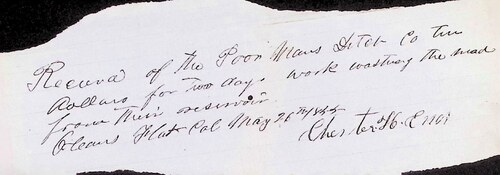 Received of the Poor Mans Ditch Co ten
Dollars for two days work washing the mud
from their reservoir
Orleans Flat Cal May 26th 1855
Chester H.